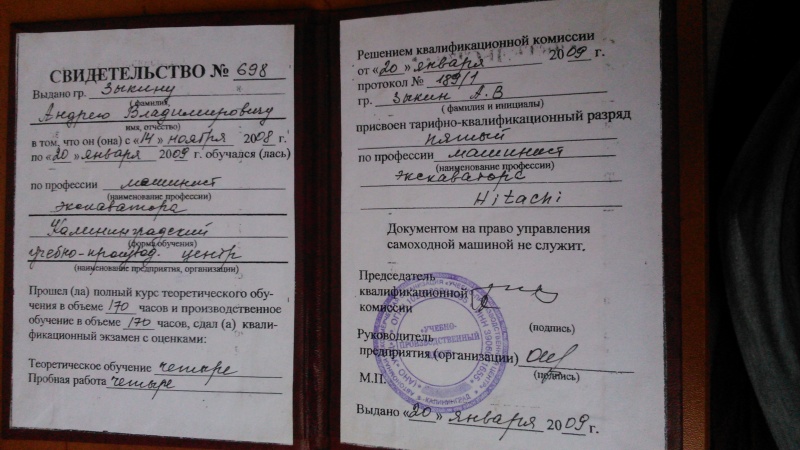 СВИДЕТЕЛЬСТВО № 698
Выдано гр. Зыкину
( фамилия,
Андрею Владимировичу
имя, отчество)
в том, что он (она) с «14» ноября 2008 г.
по «20» января 2009 г. обучался (лась)
по профессии машинист
(наименование профессии)
экскаватора
Калининградский
(форма обучения)
учебно-производ. центр
(наименование предприятия, организации)
Прошел (ла) полный курс теоретического обу-
чения в объеме 170 часов и производственное
обучение в объеме 170 часов, сдал (а) квали-
фикационный экзамен с оценками:
Теоретическое обучение четыре
Пробная работа четыре
Решением квалификационной комиссии
от «20» января 2009 г.
протокол № 189/1
гр. Зыкин А.В
( фамилия и инициалы)
присвоен тарифно-квалификационный разряд
пятый
по профессии машинист
(наименование профессии)
экскаватора
Hitachi
Документом на право управления
самоходной машиной не служит.
Председатель
квалификационной
комиссии
(подпись)
Руководитель
предприятия (организации)
(подпись)
М.П.
«УЧЕБНО-
ПРОИЗВОДСТВЕННЫЙ
Выдано «20» января 2009 г.